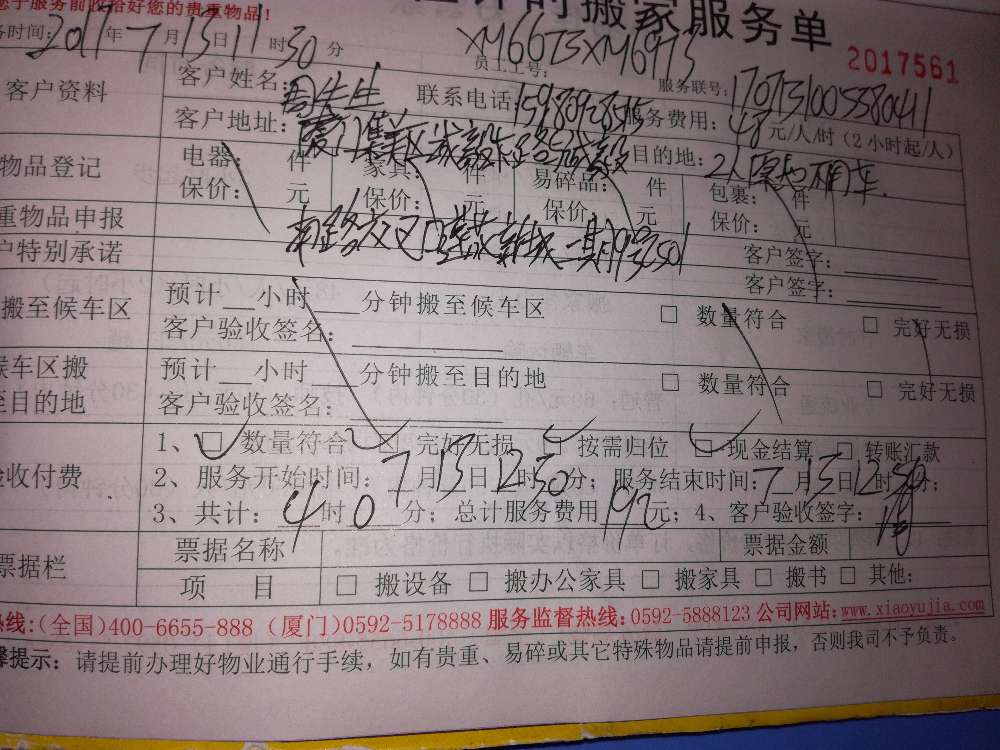 您于服务前收拾好您的贵重物品！
计时搬家服务单
务时间：2017年7月15日11时30分 员工工号：XM6673XM6975 2017561
客户资料 客户姓名：周先生 联系电话 服务联号：
客户地址：厦门集美区 服务费用：48元/人/时（2小时起/人）
物品登记 电器： 件 家具： 件 易碎品： 件 目的地： 包裹： 件
保价： 元 保价： 元 保价 元 保价： 元
重物品申报 客户签字：
户特别承诺 客户签字：
搬至候车区 预计 小时 分钟搬至候车区 □ 数量符合 □ 完好无损
客户验收签名：
候车区搬至目的地 预计 小时 分钟搬至目的地 □ 数量符合 □ 完好无损
客户验收签名：
验收付费 1、□ 数量符合 □ 完好无损 □ 按需归位 □ 现金结算 □ 转账汇款
2、服务开始时间：7月15日12时50分；服务结束时间：7月15日12时50分；
3、共计：4时0分；总计服务费用192元；4、客户验收签字：
票据栏 票据名称 票据金额
项 目 □ 搬设备 □ 搬办公家具 □ 搬家具 □ 搬书 □ 其他：
热线：(全国)400-6655-888 (厦门)0592-5178888 服务监督热线：0592-5888123 公司网站：www.xiaoyujia.com
馨提示：请提前办理好物业通行手续，如有贵重、易碎或其它特殊物品请提前申报，否则我司不予负责。